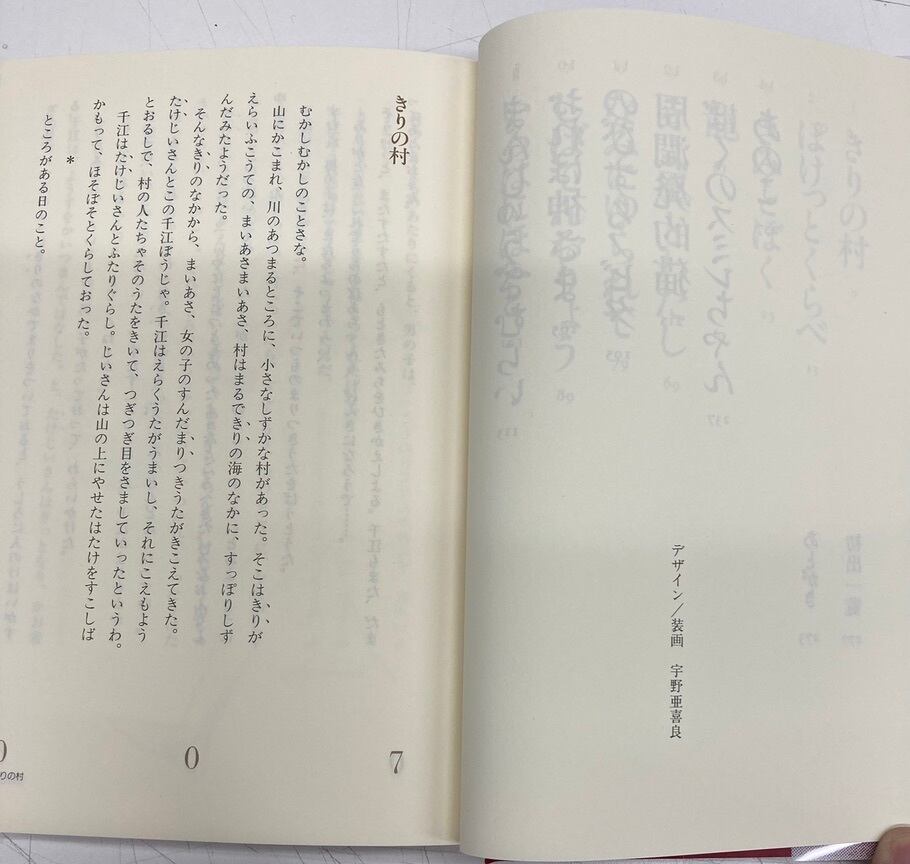 デザイン/装画　宇野亜喜良
きりの村
むかしむかしのことさな。
山にかこまれ、川のあつまるところに、小さなしずかな村があった。そこはきりが
えらいふこうての、まいあさまいあさ、村はまるできりの海のなかに、すっぽりしず
んだみたようだった。
そんなきりのなかから、まいあさ、女の子のすんだまりつきうたがきこえてきた。
たけじいさんとこの千江ぼうじゃ。千江はえらくうたがうまいし、それにこえもよう
とおるしで、村の人たちゃそのうたをきいて、つぎつぎ目をさましていったというわ。
千江はたけじいさんとふたりぐらし。じいさんは山の上にやせたはたけをすこしば
かもって、ほそぼそとくらしておった。
*
ところがある日のこと。
0
0
7
りの村